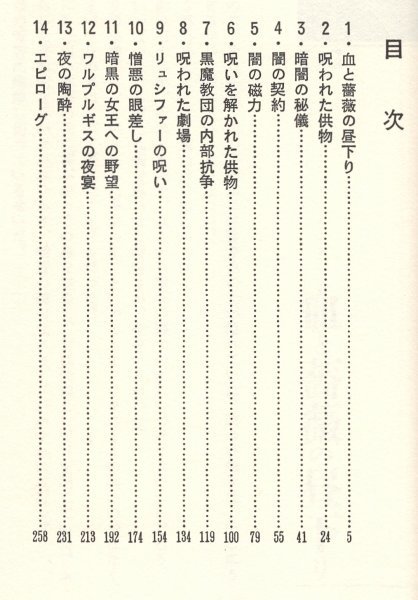 目次
1・血と薔薇の昼下り……5
2・呪われた供物……24
3・暗闇の秘儀……41
4・闇の契約……55
5・闇の磁力……79
6・呪いを解かれた供物……100
7・黒魔教団の内部抗争……119
8・呪われた劇場……134
9・リュシファーの呪い……154
10・憎悪の眼差し……174
11・暗黒の女王への野望……192
12・ワルプルギスの夜宴……213
13・夜の陶酔……231
14・エピローグ……258